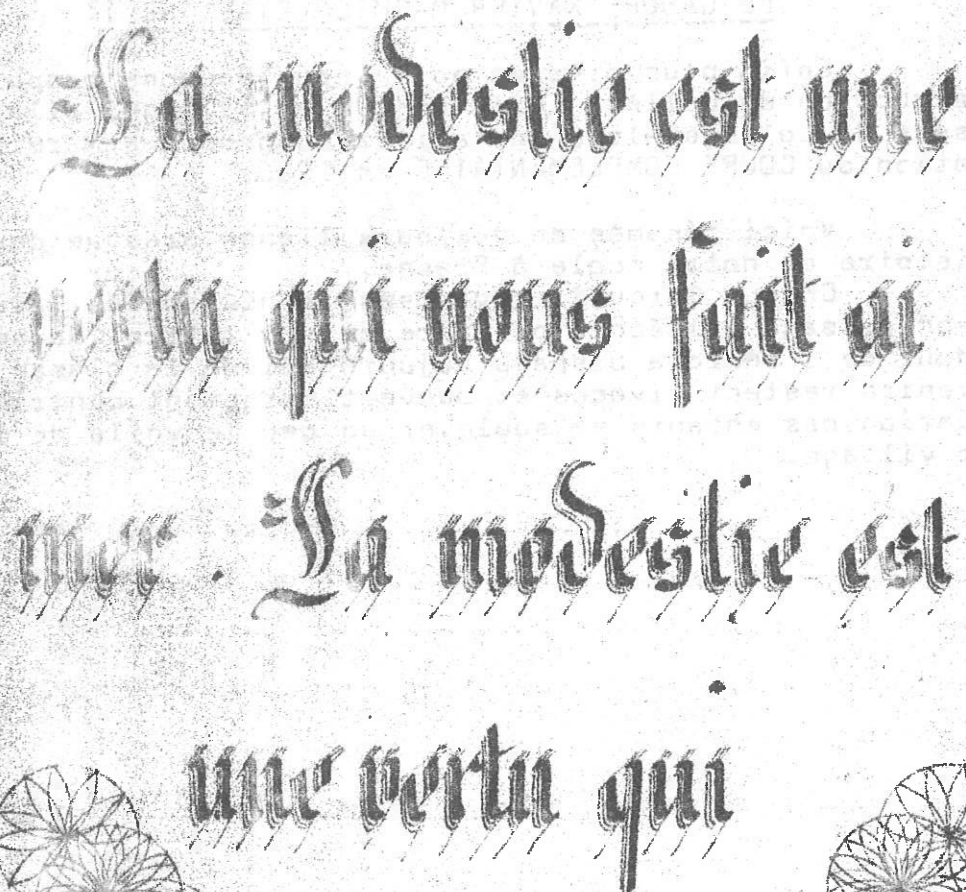 La modestie est une
vertu qui nous fait ai
mer. La modestie est
une vertu qui